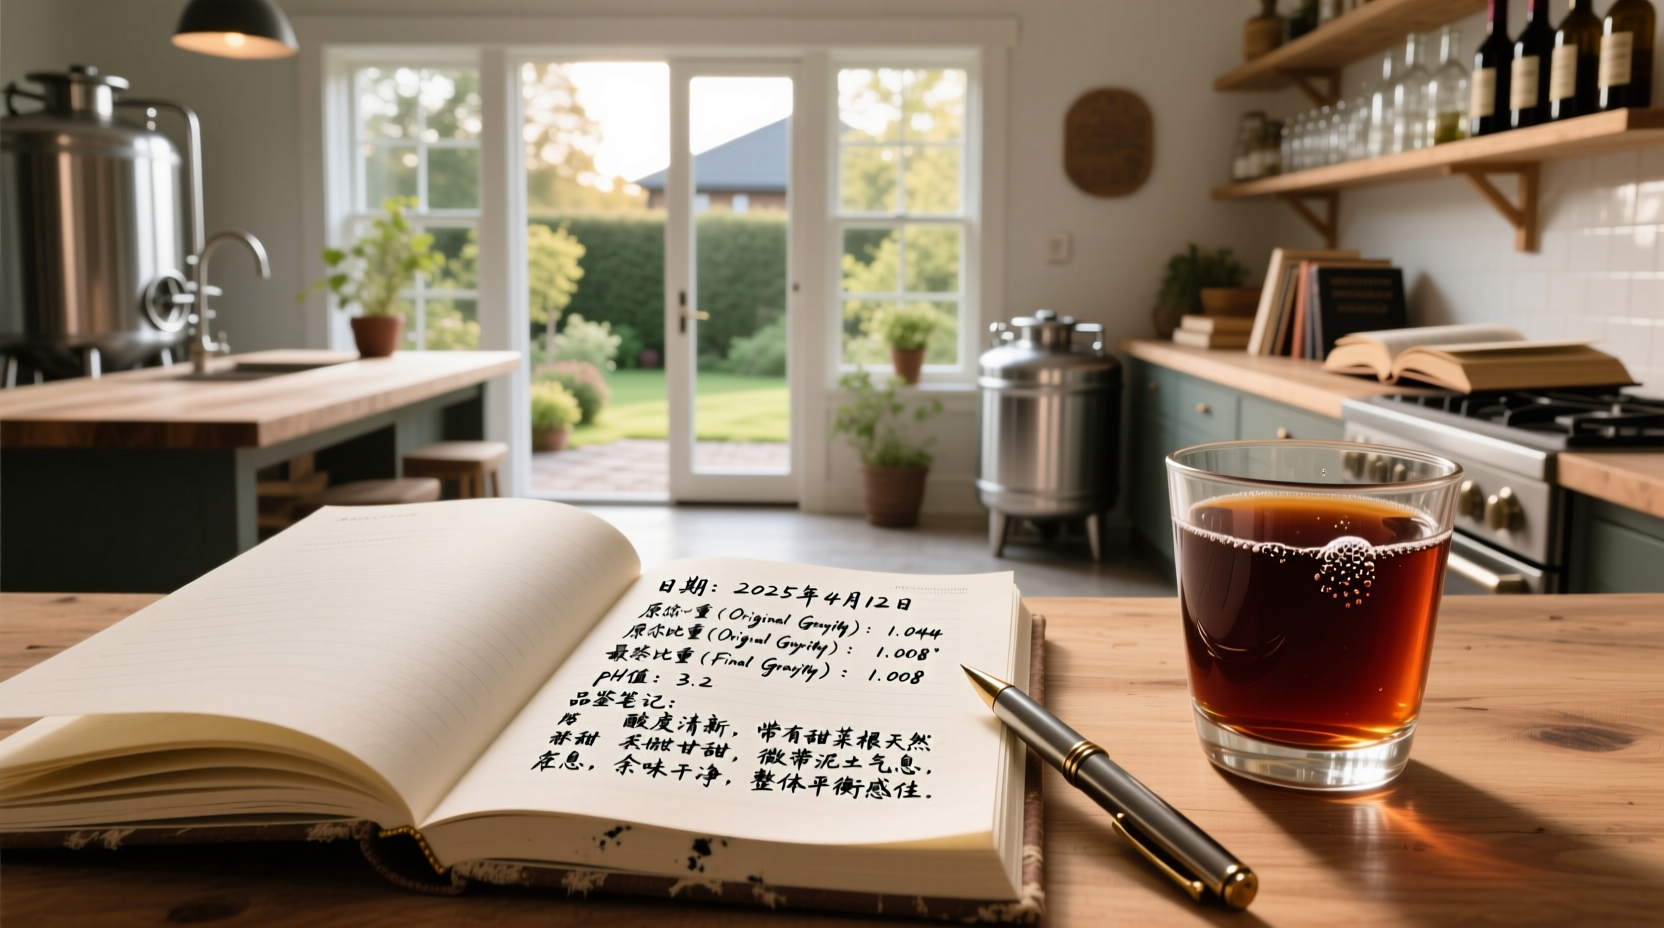 日期：2025年4月12日
原 重 (Original )：1.044
原 比重 ( )：1.008
最 比重 (Final )：1.008
pH值：3.2
品鉴笔记：
酸度清新，带有甜菜根天然
甜 甘甜，微带泥土气息，
息，余味干净，整体平衡感佳.